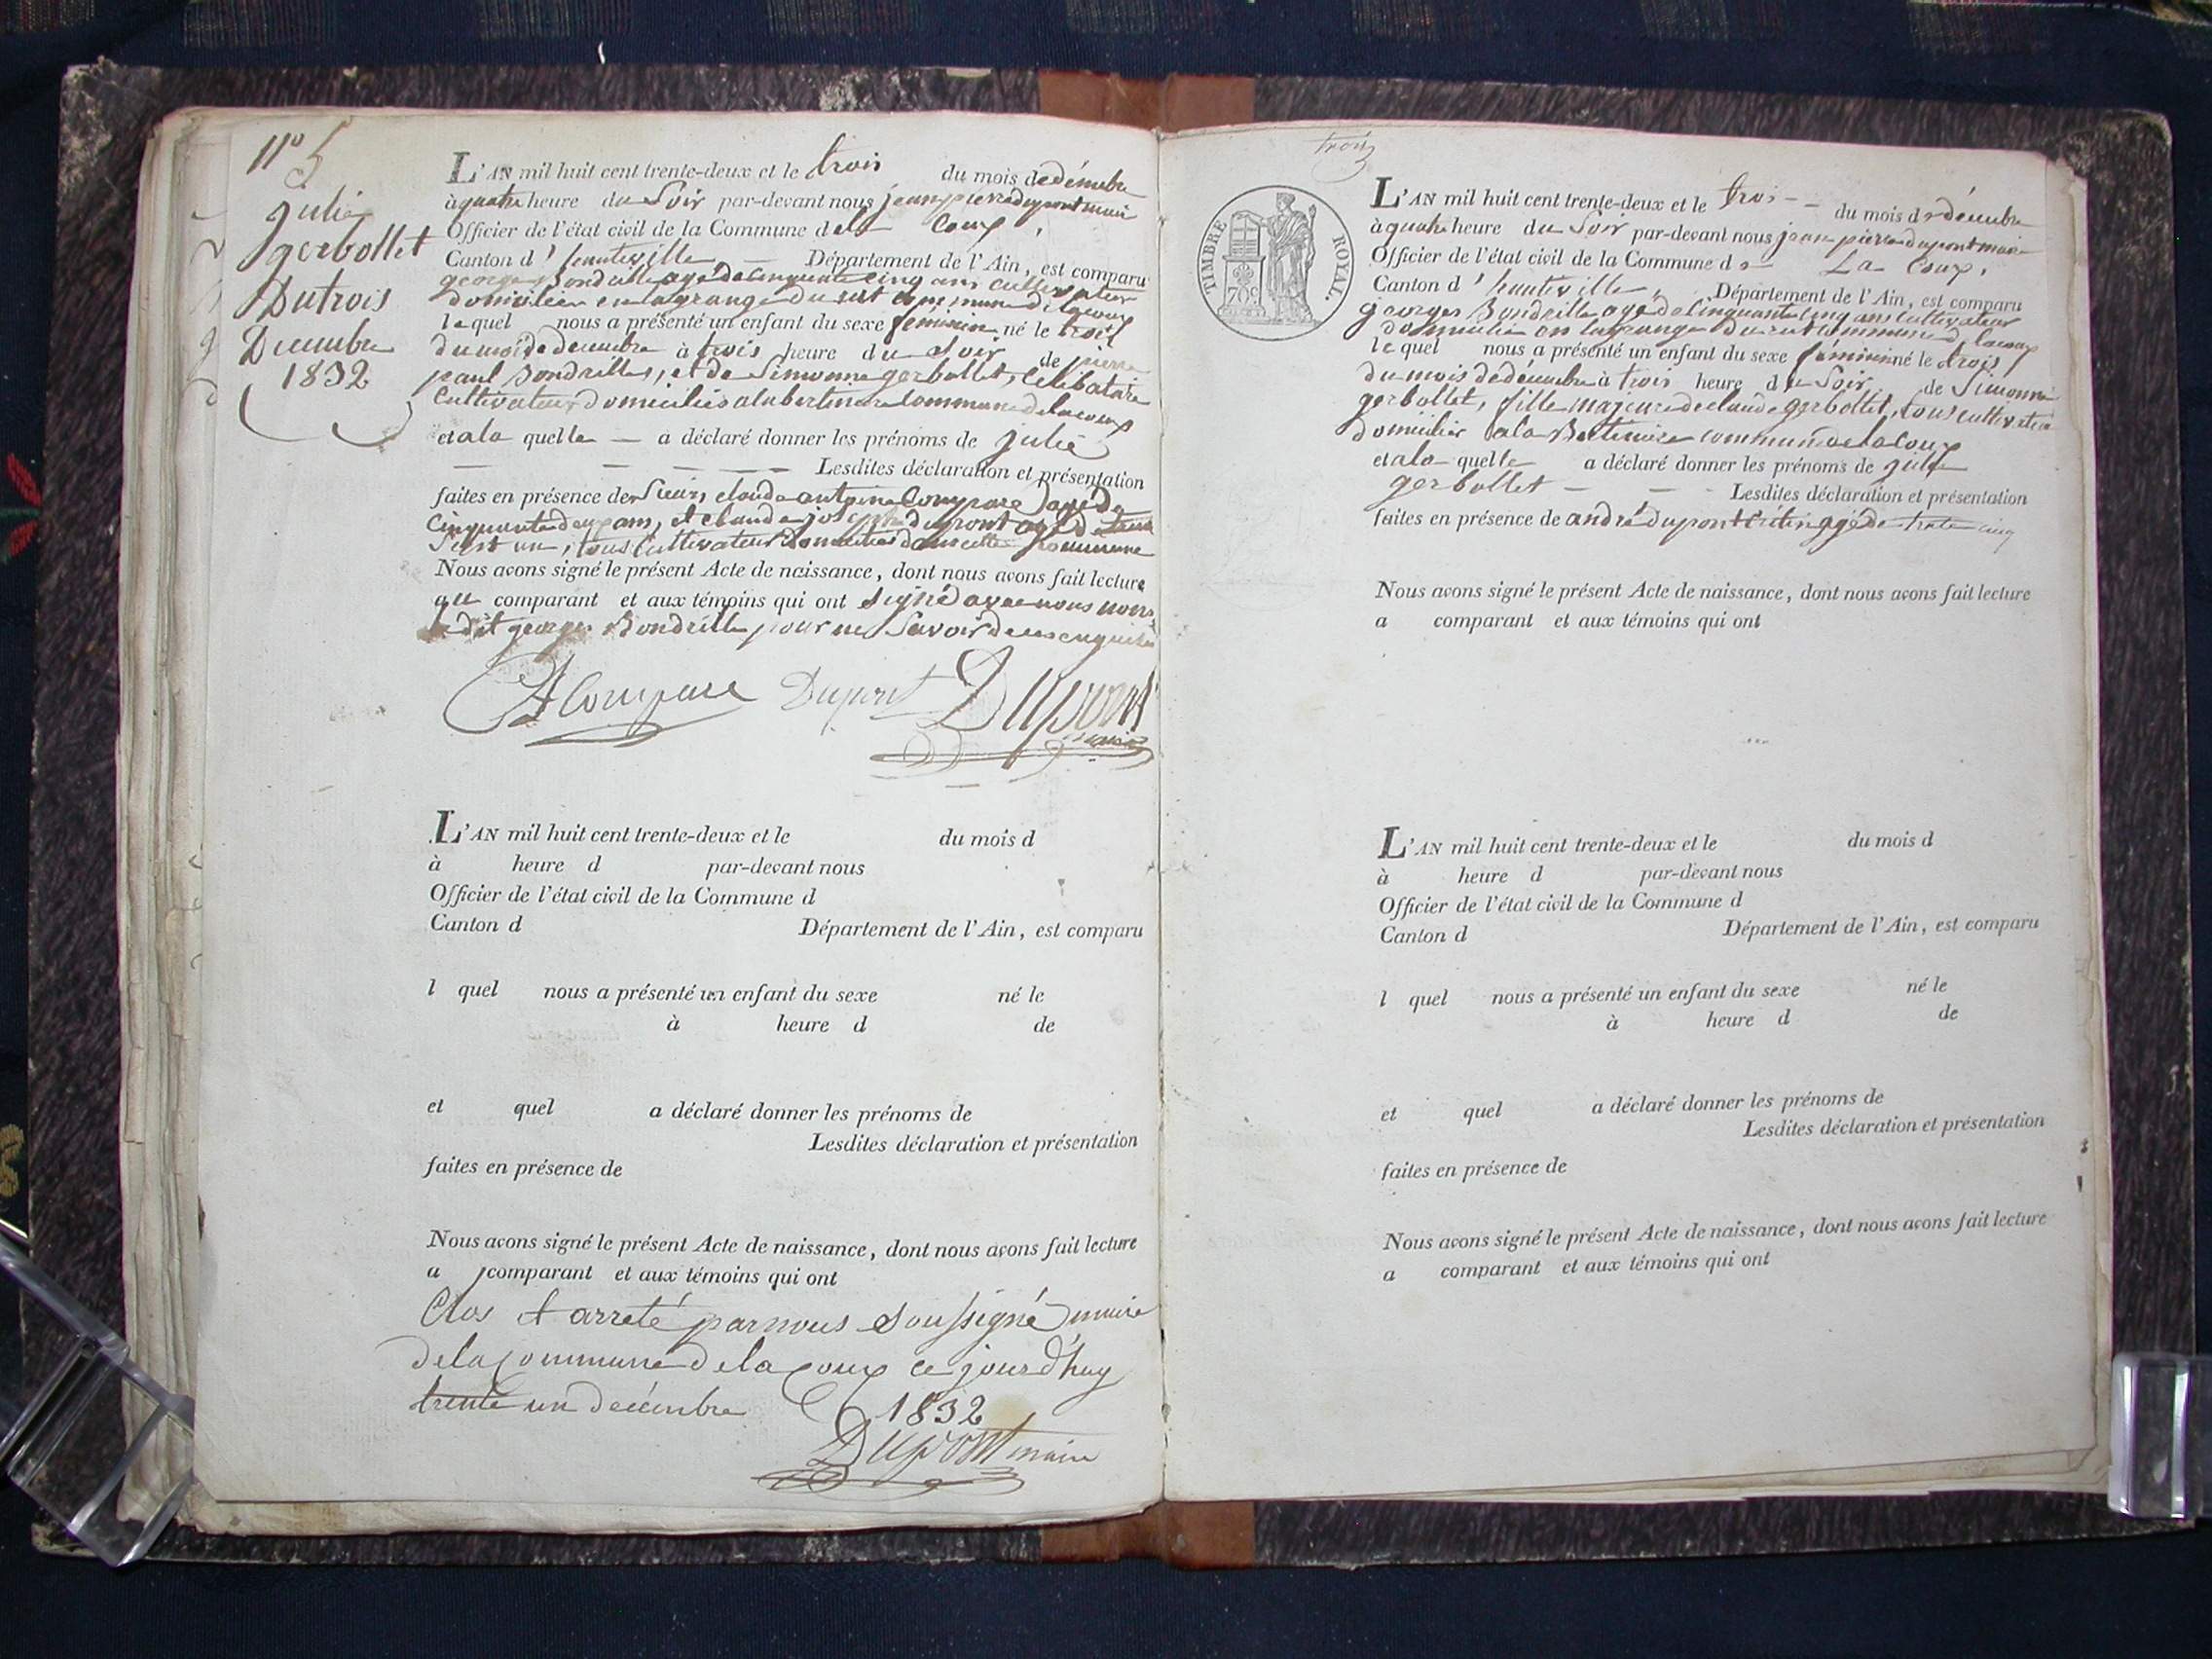 n° 5
julie
gerbollet
Du trois
Decembre
1832
L'AN mil huit cent trente-deux et le trois du mois de décembre
à quatre heure du Soir par-devant nous jean pierre dupont maire
Officier de l'état civil de la Commune de la Coux,
Canton d'hauteville, Département de l'Ain, est comparu
george Bondrille agé de Cinquante cinq ans cultivateur
domicilier en la grange du commune de lacoux
le quel nous a présenté un enfant du sexe féminin né le trois
du mois de decembre à trois heure du Soir de pierre
paul Bondrille, et de Simonne gerbollet, Célibataire
Cultivateur domiciliés a la bertiniere Commune de lacoux
et a la quelle a déclaré donner les prénoms de julie
Lesdites déclaration et présentation
faites en présence des Sieurs claude antoine Compare agé de
Cinquante deux ans, et claude joseph dupont agé de
un, tous Cultivateur domiciliés dans cette Commune
Nous avons signé le présent Acte de naissance, dont nous avons fait lecture
au comparant et aux témoins qui ont signé avec nous non
le dit george Bondrille pour ne Savoir de ces enquis
CA Compare Dupont Dupont
maire
L'AN mil huit cent trente-deux et le du mois d
à heure d par-devant nous
Officier de l'état civil de la Commune d
Canton d Département de l'Ain, est comparu
l quel nous a présenté un enfant du sexe né le
à heure d de
et quel a déclaré donner les prénoms de
Lesdites déclaration et présentation
faites en présence de
Nous avons signé le présent Acte de naissance, dont nous avons fait lecture
a comparant et aux témoins qui ont
Clos et arreté par nous soussigné maire
de la Commune de la Coux ce jourd'huy
trente un decembre 1832
Dupont maire
trois
TIMBRE ROYAL.
L'AN mil huit cent trente-deux et le trois du mois de décembre
à quatre heure du Soir par-devant nous jean pierre dupont maire
Officier de l'état civil de la Commune de La Coux,
Canton d'hauteville, Département de l'Ain, est comparu
george Bondrille agé de Cinquante cinq ans Cultivateur
domicilié en la grange du commune de lacoux
le quel nous a présenté un enfant du sexe féminin né le trois
du mois de décembre à trois heure du Soir de Simonne
gerbollet, fille majeure de claude gerbollet, tous cultivateur
domicilier a la Bertiniere commune de la Coux
et a la quelle a déclaré donner les prénoms de julie
gerbollet Lesdites déclaration et présentation
faites en présence de andré dupont agé de trente cinq
Nous avons signé le présent Acte de naissance, dont nous avons fait lecture
a comparant et aux témoins qui ont
L'AN mil huit cent trente-deux et le du mois d
à heure d par-devant nous
Officier de l'état civil de la Commune d
Canton d Département de l'Ain, est comparu
l quel nous a présenté un enfant du sexe né le
à heure d de
et quel a déclaré donner les prénoms de
Lesdites déclaration et présentation
faites en présence de
Nous avons signé le présent Acte de naissance, dont nous avons fait lecture
a comparant et aux témoins qui ont